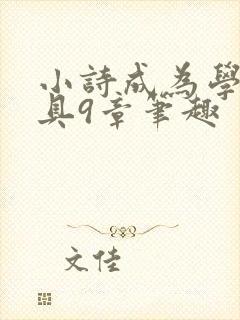 小詩成為學
具9章筆趣
文佳